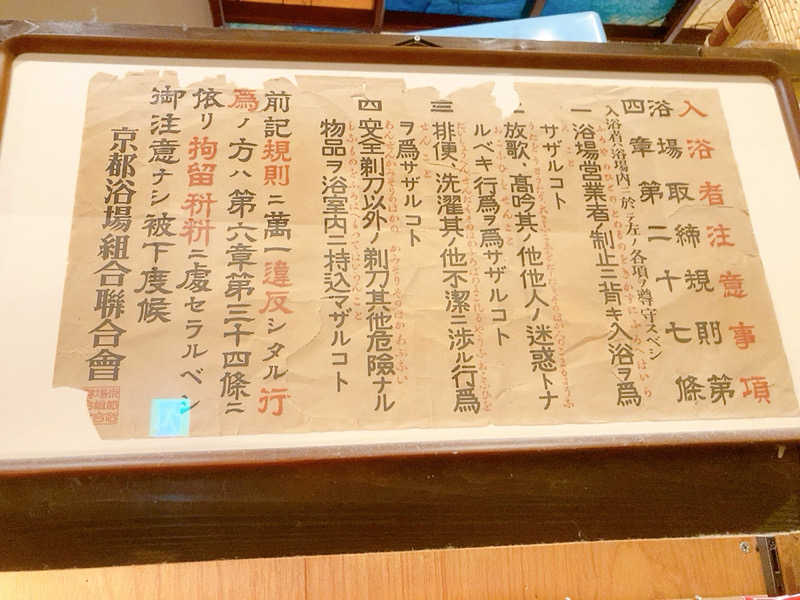 入浴者注意事項
浴場取締規則第
四章第二十七條
入浴者ハ浴場内ニ於テ左ノ各項ノ尊守スベシ
一 浴場營業者ノ制止ニ背キ入浴ヲ爲
サザルコト
二 放歌、高吟其ノ他他人ノ迷惑トナ
ルベキ行爲ヲ爲サザルコト
三 排便、洗濯其ノ他不潔ニ涉ル行爲
ヲ爲サザルコト
四 安全剃刀以外ノ剃刀其他危險ナル
物品ヲ浴室内ニ持込マザルコト
前記規則ニ萬一違反シタル行
爲ノ方ハ第六章第三十四條ニ
依リ拘留科料ニ處セラルベシ
御注意ナシ被下度候
京都浴場組合聯合會